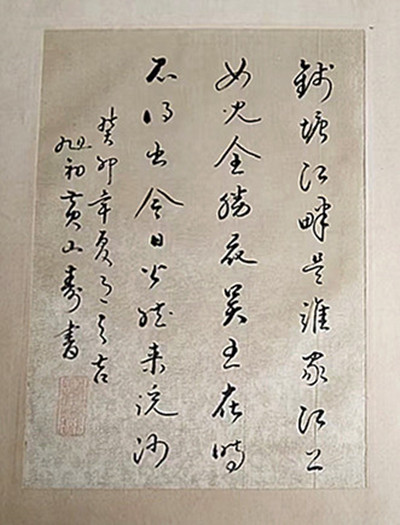 錢塘江畔是誰家江上
女兒全勝花吴王在時
不得出今日公然来浣沙
癸卯年夏月之吉
旭初黄山壽書